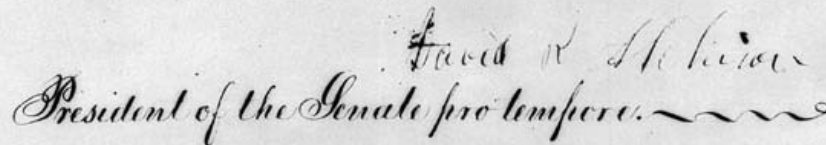 David R
President of the Senate pro tempore.